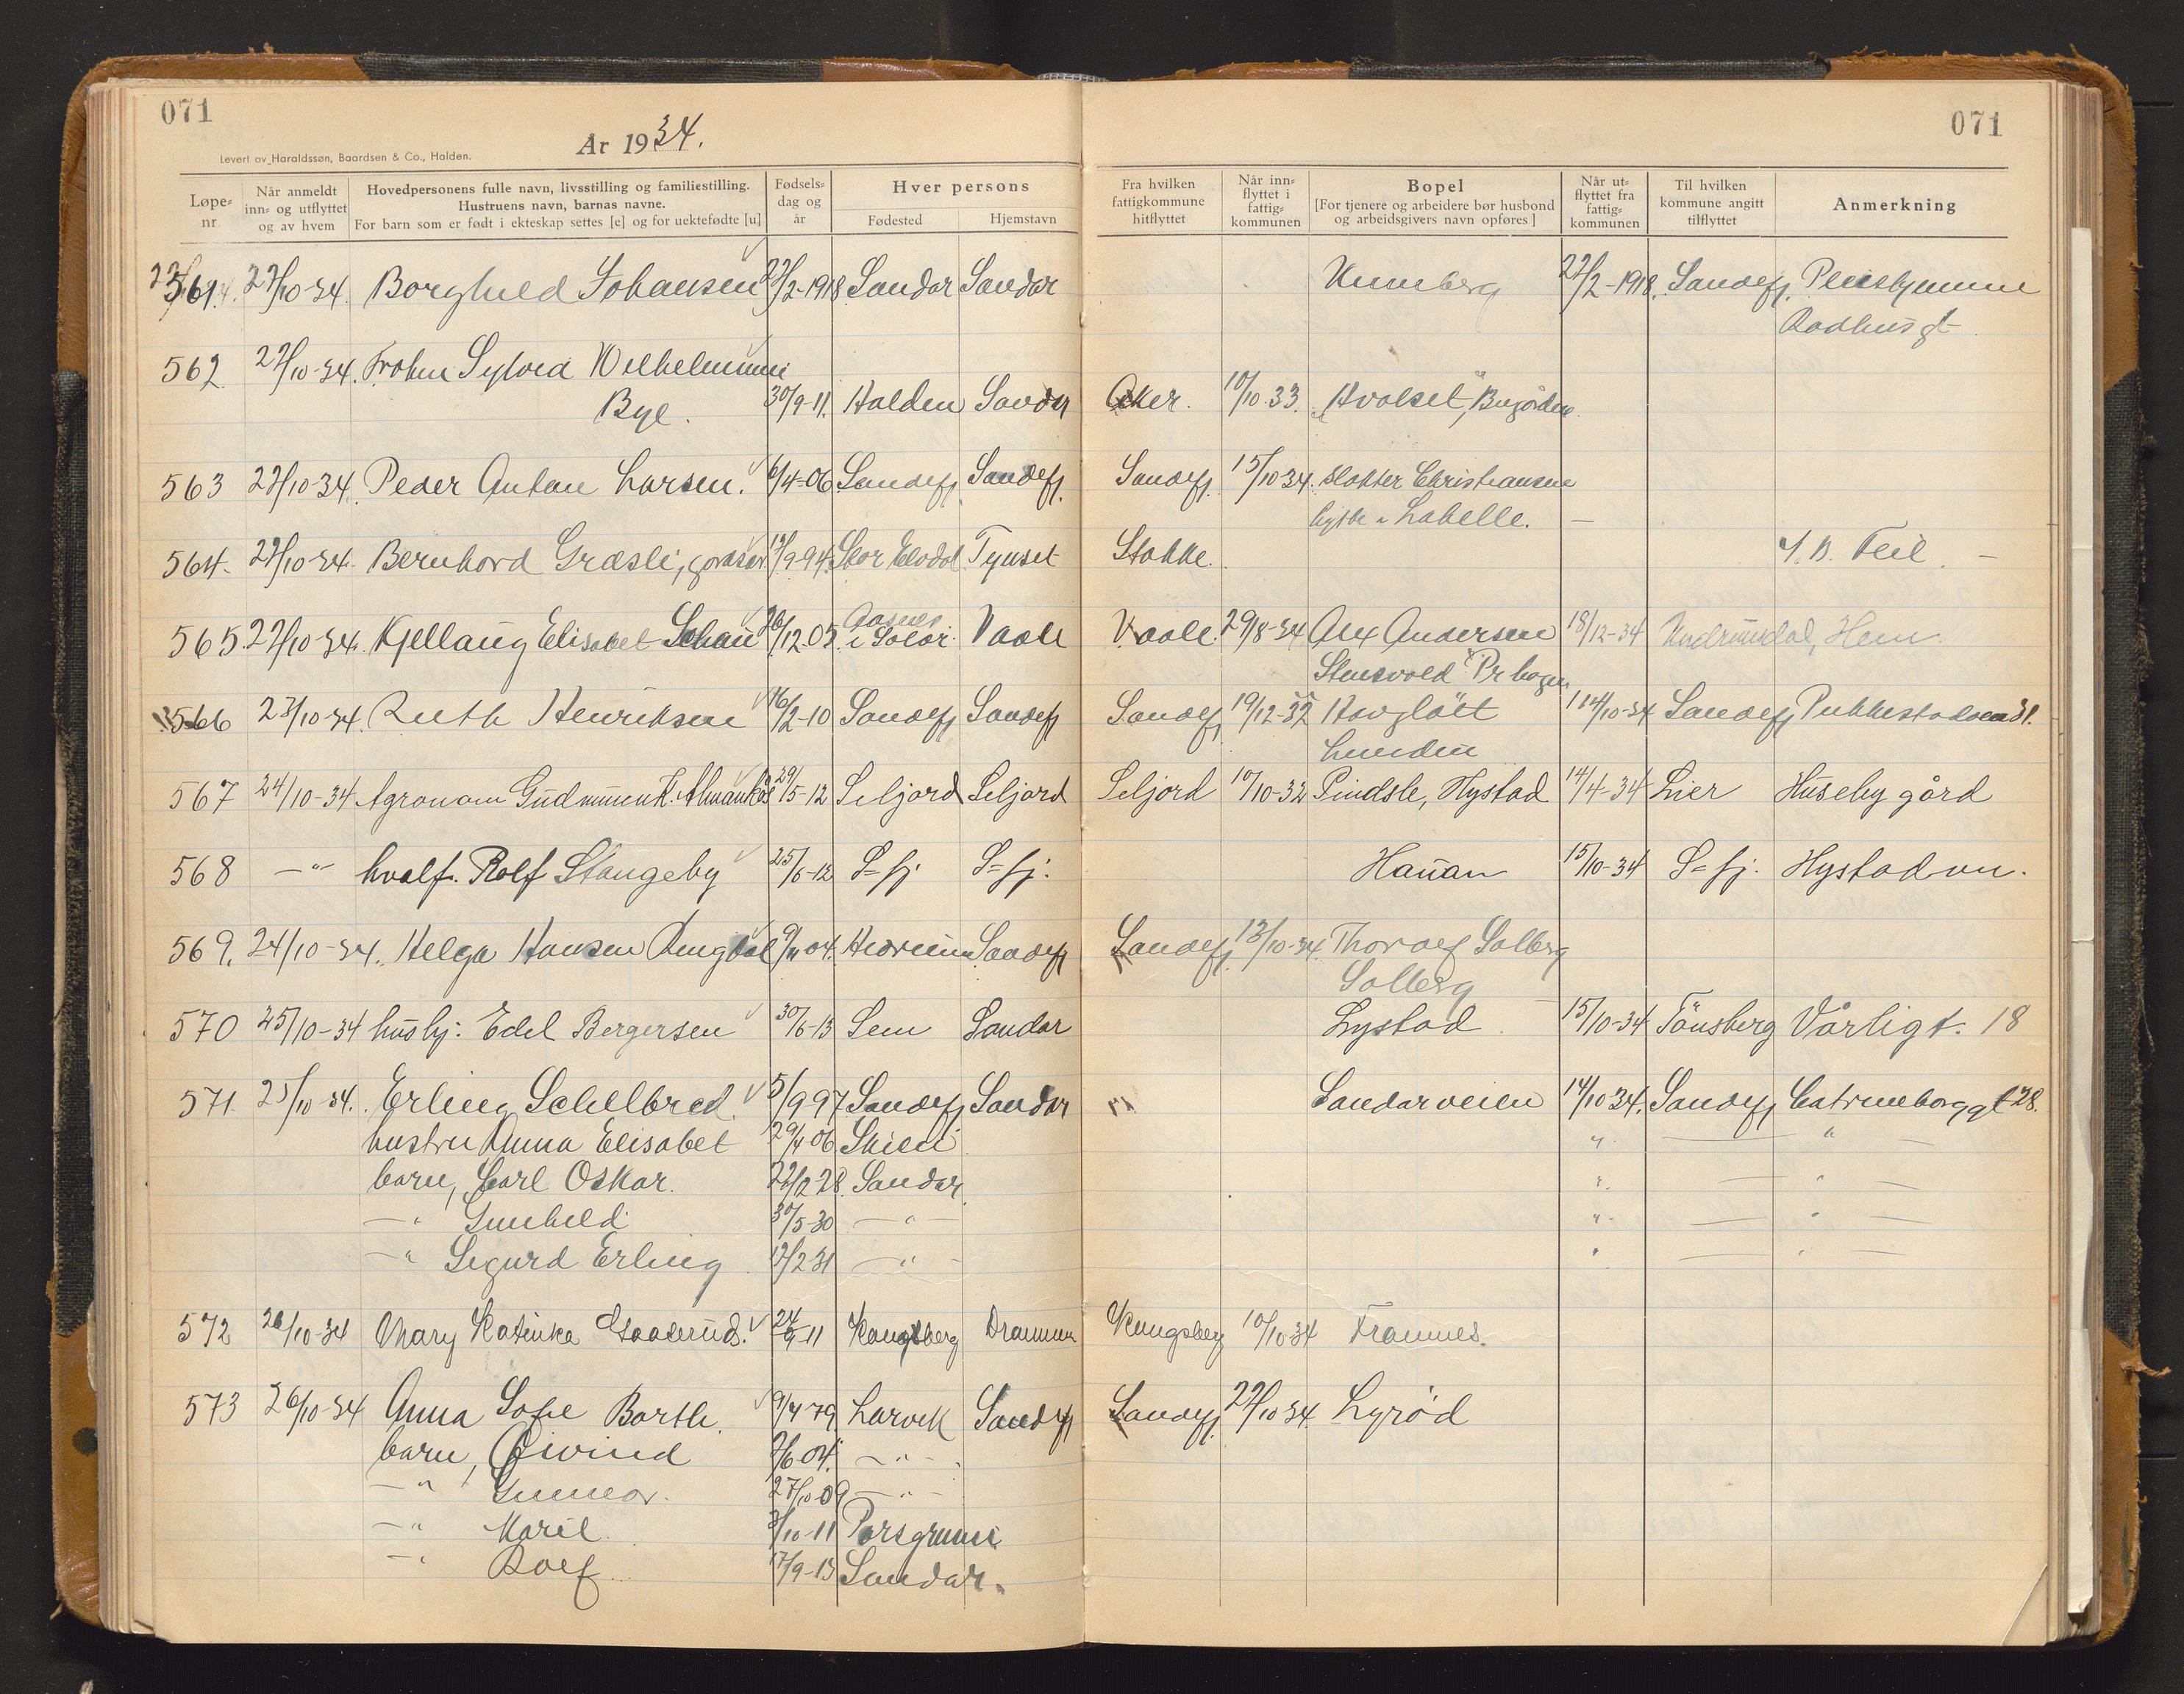 071
071
År 1934.
Levert av Haraldssøn, Baardsen & Co., Halden.
Løpe-nr.
Når anmeldt inn- og utflyttet og av hvem
Hovedpersonens fulle navn, livsstilling og familiestilling.
Hustruens navn, barnas navne.
For barn som er født i ekteskap settes [e] og for uektefødte [u]
Fødsels-dag og år
Hver persons
Fødested
Hjemstavn
Fra hvilken fattigkommune hitflyttet
Når inn-flyttet i fattig-kommunen
Bopel
[For tjenere og arbeidere bør husbond og arbeidsgivers navn opføres]
Når ut-flyttet fra fattig-kommunen
Til hvilken kommune angitt tilflyttet
Anmerkning
561. 22/10-34. Borghild Johansen 22/2-1918 Sandar Sandar 22/2-1918. Sandefj. Pleiehjemmet
Radhusgt.
562 22/10-34. Sylvia Wilhelmine
Bye. 30/9-11. Halden Sandar Aker. 10/10.33. "Hvalset", Bugården
563 22/10-34. Peder Anton Larsen. 6/4-06 Sandefj. Sandefj. Sandefj. 15/10-34. Slakter Christiansen
hytte v Labelle. —
564. 22/10-34. Bernhard Græsli, 12/9-94. Stor Elvdal Tynset Stokke. Feil. —
565. 22/10-34. Kjellaug Elisabet 26/12-05 Aasnes
i Solør. Vaale Vaale. 29/8-34 Alex Andersen 18/12-34 Hem.
Stensvold
566 23/10-34. Ruth Henriksen 16/2-10 Sandefj Sandefj Sandefj 19/12-32 Haugløkt 14/10-34 Sandefj Pukkestadveien 31.
Lunden
567 24/10-34 Agronom Gudmunn K. Almankås 29/5-12 Seljord Seljord Seljord 10/10-32 Pindsle, Hystad 14/4-34 Lier Huseby gård
568 —"— hvalf. Rolf Stangeby 25/6-12 S=fj. S=fj. Hauan 15/10-34 S=fj. Hystadvn.
569. 24/10-34. Helga Hansen Ringdal 9/11 04. Hedrum Sandefj Sandefj. 13/10-34. Thorolf Solberg
Solberg
570 25/10-34 hushj: Edel Bergersen 30/6-13 Sem Sandar Lystad 15/10-34 Tönsberg Vårligt. 18
571. 25/10-34. Erling Schelbred. 5/9-97 Sandefj Sandar Sandarveien 14/10 34. Sandefj Catrineborggt 28.
hustru Anna Elisabet 29/4-06 Skien " — " —
barn, Carl Oskar. 22/2 28. Sandar " — " —
—"— Gunhild 30/5-30 —"— " — " —
—"— Sigurd Erling 12/2 31 —"— " — " —
572 26/10-34 Mary Katinka 24/9-11 Kongsberg Drammen Kongsberg 10/10-34 Framnes.
573 26/10-34 Anna Sofie Barth. 9/4-79 Larvik Sandefj Sandefj. 22/10 34. Lyrød
barn, Øivind 2/6-04. —"—
—"— Gunnar. 27/10-09 —"—
—"— Maril. 3/10-11 Porsgrunn
—"— Rolf 17/9-13 Sandar.